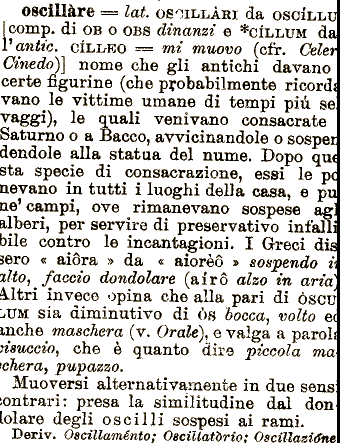 oscillàre = lat. OSCILLÀRI da OSCÍLLU
[comp. di OB o OBS dinanzi e *CÍLLUM da
l'antic. CÍLLEO = mi muovo (cfr. Celer
Cinedo)] nome che gli antichi davano
certe figurine (che probabilmente ricorda
vano le vittime umane di tempi più se
vaggi), le quali venivano consacrate
Saturno o a Bacco, avvicinandole o sospen
dendole alla statua del nume. Dopo que
sta specie di consacrazione, essi le po
nevano in tutti i luoghi della casa, e pu
ne' campi, ove rimanevano sospese agl
alberi, per servire di preservativo infalli
bile contro le incantagioni. I Greci dis
sero « aiôra » da « aiorèô » sospendo in
alto, faccio dondolare (aírô alzo in aria)
Altri invece opina che alla pari di ÒSCU
LUM sia diminutivo di ÒS bocca, volto ed
anche maschera (v. Orale), e valga a parola
visuccio, che è quanto dire piccola ma-
schera, pupazzo.
Muoversi alternativamente in due sensi
contrari: presa la similitudine dal don-
dolare degli oscilli sospesi ai rami.
Deriv. Oscillaménto; Oscillatòrio; Oscillazióne